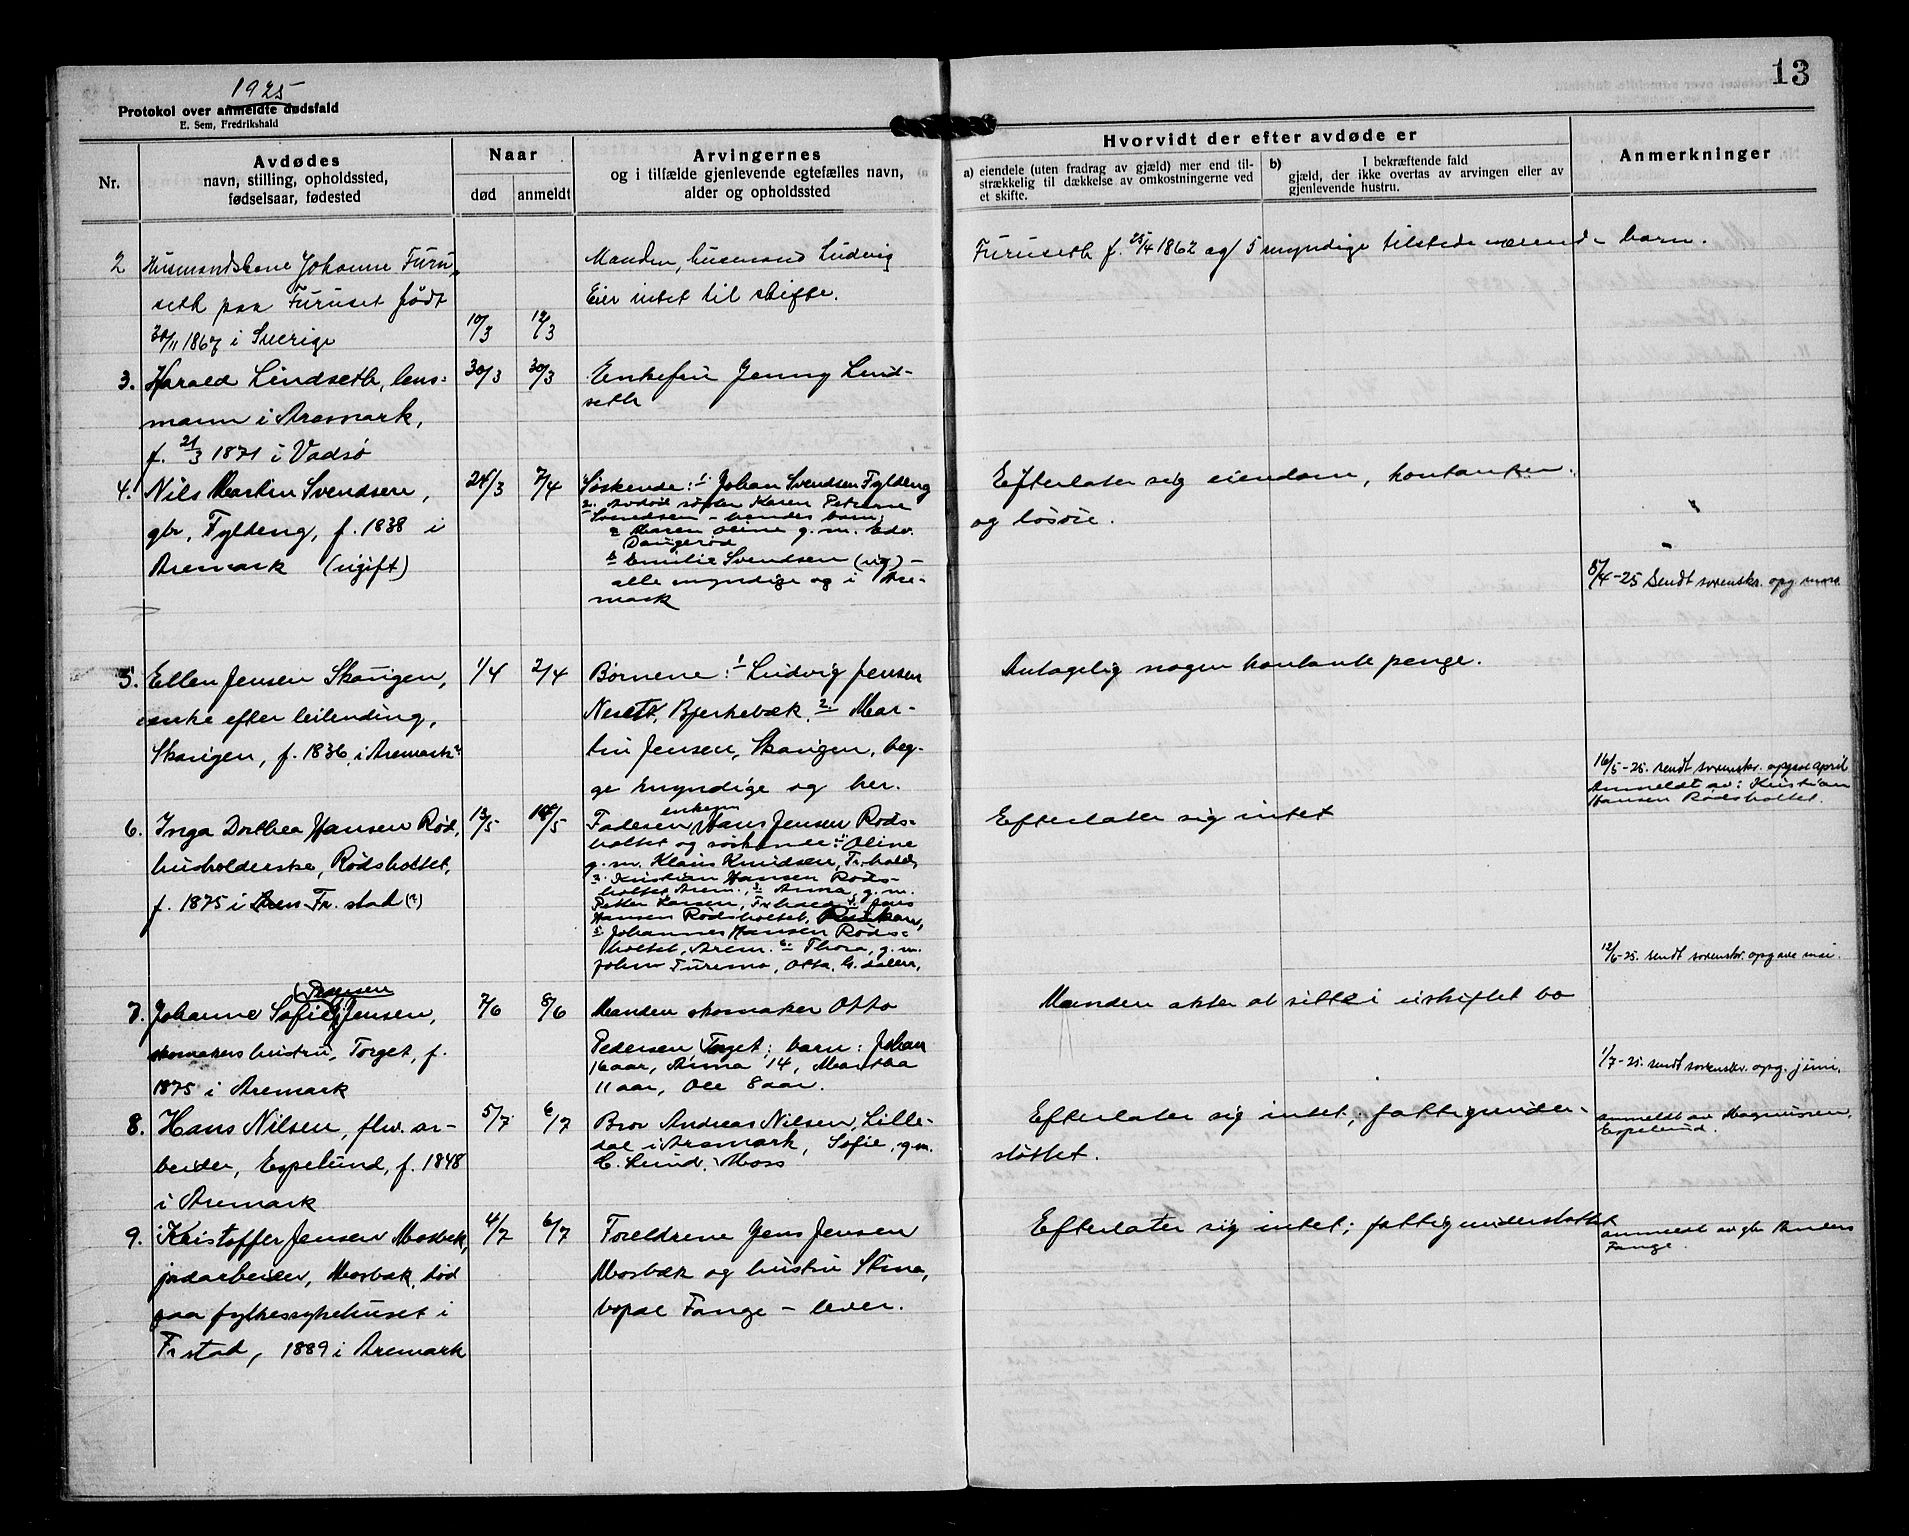 1925
13
Protokol over anmeldte dødsfald
E. Sem, Fredrikshald
Nr.
Avdødes
navn, stilling, opholdssted,
fødselsaar, fødested
Naar
død
anmeldt
Arvingernes
og i tilfælde gjenlevende egtefælles navn,
alder og opholdssted
Hvorvidt der efter avdøde er
a) eiendele (uten fradrag av gjæld) mer end til-
strækkelig til dækkelse av omkostningerne ved
et skifte.
b) I bekræftende fald
gjæld, der ikke overtas av arvingen eller av
gjenlevende hustru.
Anmerkninger
2 Husmandskone Johanne Furu-
seth paa Furuset født
30/11 1867 i Sverige
10/3
12/3
Manden, husmand Ludvig
Eier intet til skifte.
Furuseth f. 25/4 1862 og 5 myndige tilstedeværende barn.
3. Harald Lindseth, lens-
mann i Aremark,
f. 21/3 1871 i Vadsø
30/3
30/3
Enkefru Jenny Lind-
seth
4. Nils Martin Svendsen,
gbr, Fyldeng, f. 1838 i
Aremark (ugift)
24/3
7/4
Søskende: 1. Johan Svendsen Fyldeng
2. Avdød søster Karen Petrine
Svendsen - hendes barn,
a Maren Oline g.m. Edv.
Daugerød
b Emilie Svendsen (ug) -
alle myndige og i Are-
mark
Efterlater sig eiendom, kontanter
og løsøre.
8/4-25 Sendt sorenskr. opg. mars.
5. Ellen Jensen Skaugen,
enke efter leilending,
Skaugen, f. 1836 i Aremark
1/4
2/4
Børnene: 1 Ludvig Jensen
Neseth, Bjerkebæk, 2. Mar-
tin Jensen, Skaugen, beg-
ge myndige og her.
Antagelig nogen kontante penge.
16/5-25. sendt sorenskr. opgave april
Anmeldt av: Kristian
Hansen Rødsholtet.
6. Inga Dorthea Hansen Rød,
husholderske, Rødsholtet,
f. 1875 i Fr. stad (?)
13/5
14/5
enkem
Faderen Hans Jensen Røds-
holtet og søskende: 1. Oline
g.m. Klaus Knudsen, Fr.hald,
2. Kristian Hansen Røds-
holtet Arem., 3. Anna, g.m.
Petter Larsen, Fr.hald 4. Jens
Hansen Rødsholtet,
5. Johannes Hansen Røds-
holtet, Arem. 6. Thora, g.m.
Johan Furumo, Otta, G. dalen,
Efterlater sig intet
12/6-25. sendt sorenskr. opgave mai.
7. Johanne Sofie Jensen,
skomakers hustru, Torget, f.
1875 i Aremark
7/6
8/6
Manden skomaker Otto
Pedersen Torget; barn: Johan
16 aar, Anna 14, Martha
11 aar, Ole 8 aar.
Manden akter at sitte i uskiftet bo
1/7-25. sendt sorenskr. opg. juni.
8. Hans Nilsen, fhv. ar-
beider, Espelund, f. 1848
i Aremark
5/7
6/7
Bror Andreas Nilsen, Lille-
dal i Aremark, Sofie, g.m.
C. Lund, Moss
Efterlater sig intet; fattigunder-
støttet.
Anmeldt av Magnussen,
Espelund.
9. Kristoffer Jensen Mosbæk,
jordarbeider, Mosbæk, død
paa fylkessykehuset i
Fr.stad, 1889 i Aremark
4/7
6/7
Foreldrene Jens Jensen
Mosbæk og hustru Stina,
bopæl Fange - lever.
Efterlater sig intet; fattigunderstøttet
anmeldt av gbr Anders
Fange.